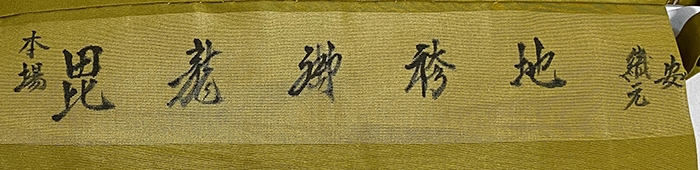 本場
毘龍御袴地
織元
安